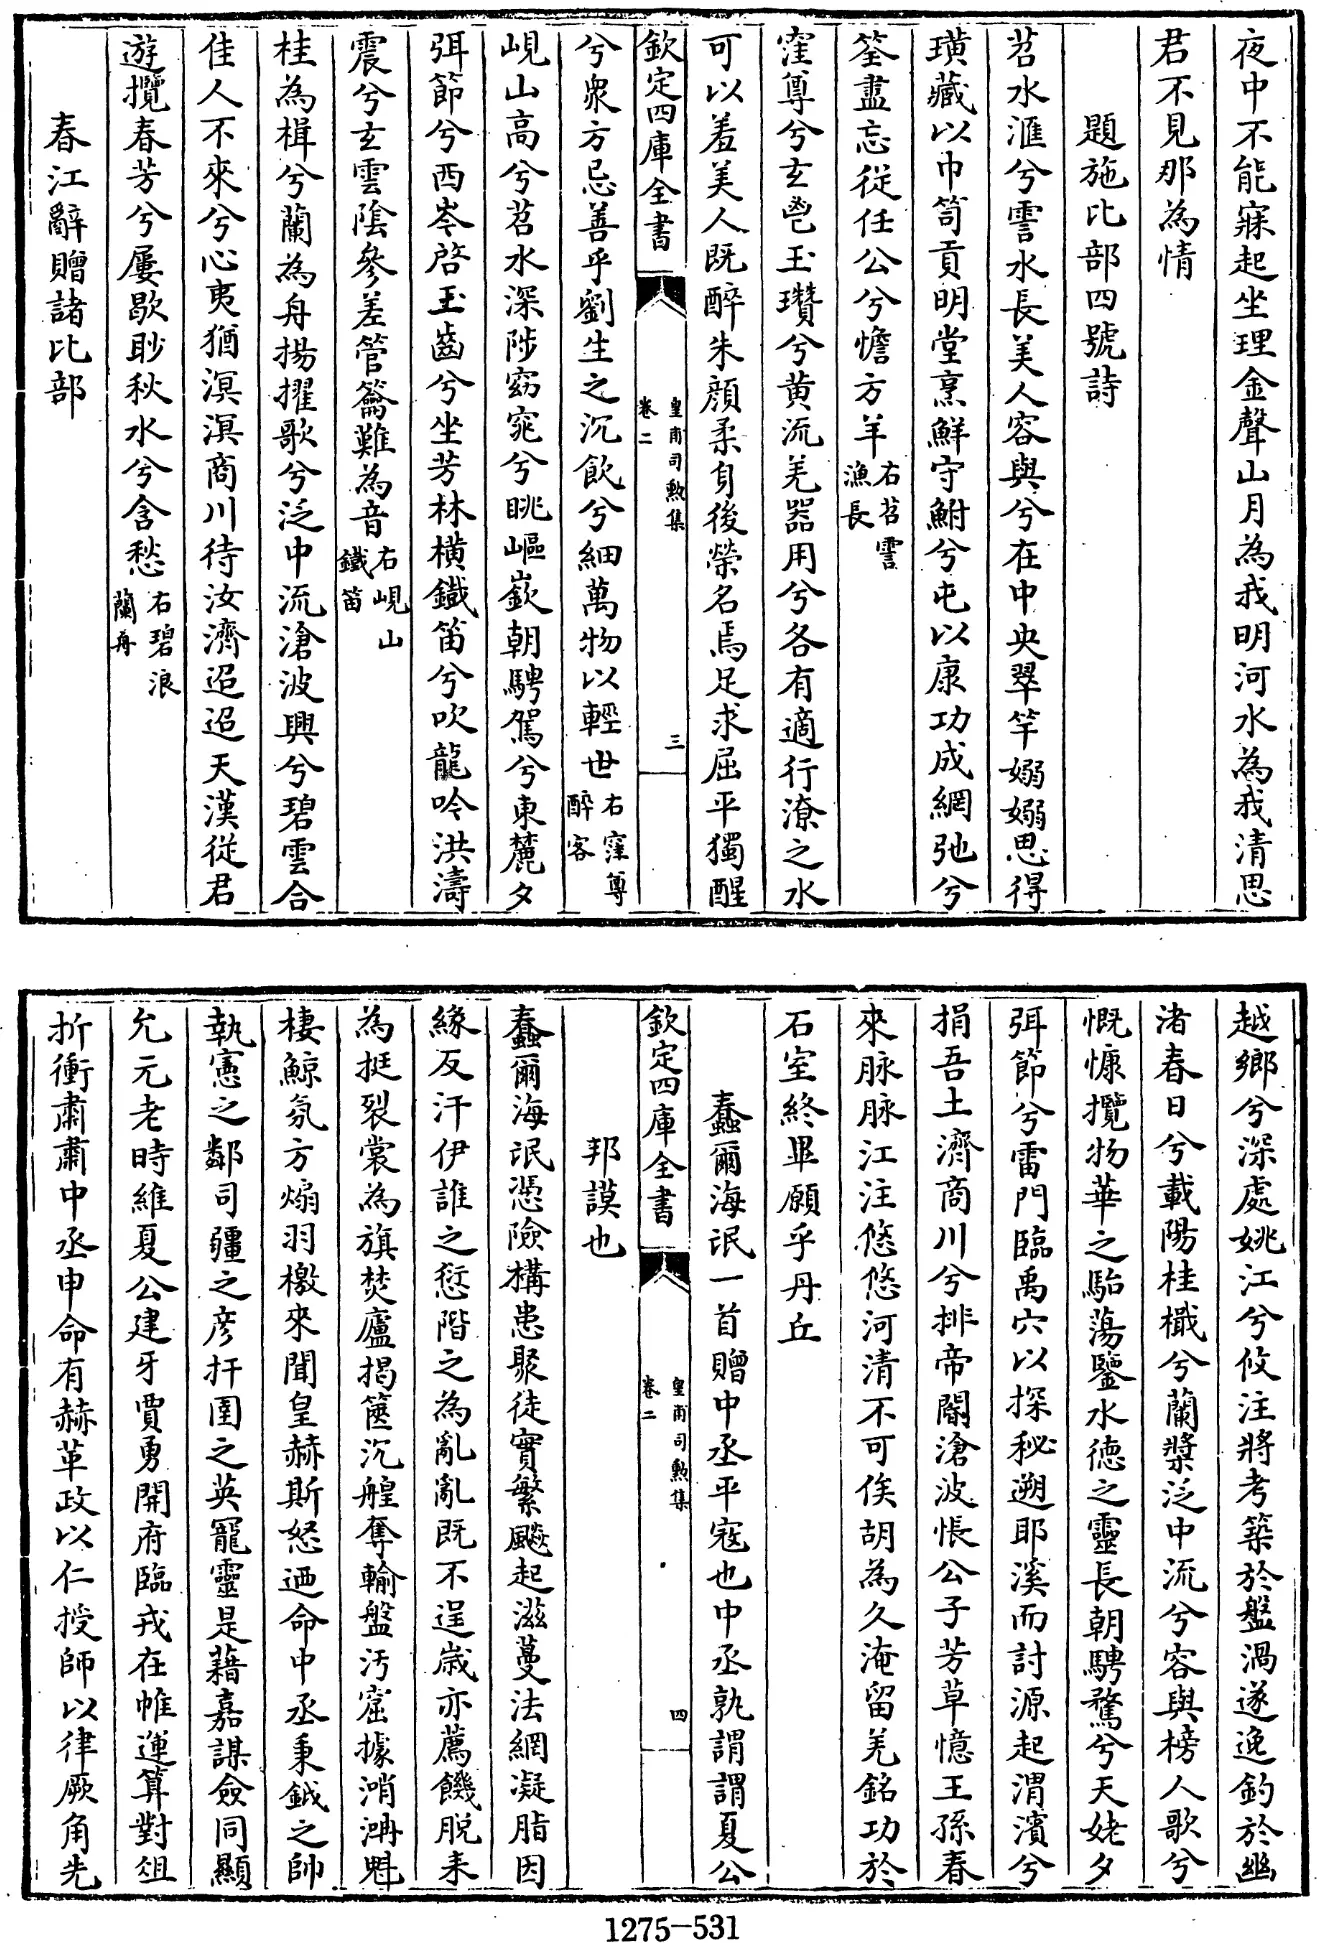 夜中不能寐起坐理金聲山月為我明河水為我清思
君不見那為情
題施比部四號詩
苕水滙兮霅水長美人容與兮在中央翠竿嫋嫋思得
璜藏以巾笥貢明堂烹鮮守鮒兮屯以康功成網弛兮
筌盡忘從任公兮憺方羊右苕霅漁長
窪尊兮玄鬯玉瓚兮黄流羌器用兮各有適行潦之水
可以羞美人既醉朱顔柔身後榮名焉足求屈平獨醒
欽定四庫全書
皇甫司勲集
卷二
三
兮衆方忌善乎劉生之沉飲兮細萬物以輕世右窪尊醉客
峴山高兮苕水深陟窈窕兮眺嶇嶔朝騁駕兮東麓夕
弭節兮西岑啓玉齒兮坐芳林橫鐵笛兮吹龍吟洪濤
震兮玄雲陰參差管籥難為音右峴山鐵笛
桂為楫兮蘭為舟揚擢歌兮泛中流滄波興兮碧雲合
佳人不來兮心夷猶溟溟商川待汝濟迢迢天漢從君
遊攬春芳兮屢歇眇秋水兮含愁右碧浪蘭舟
春江辭贈諸比部
越鄉兮深處姚江兮攸注將考築於盤渦遂逸釣於幽
渚春日兮載陽桂檝兮蘭槳泛中流兮容與榜人歌兮
慨慷攬物華之駘蕩鑒水德之靈長朝騁騖兮天姥夕
弭節兮雷門臨禹穴以探秘遡耶溪而討源起渭濱兮
捐吾土濟商川兮排帝閽滄波悵公子芳草憶王孫春
來脉脉江注悠悠河清不可俟胡為久淹留羌銘功於
石室終畢願乎丹丘
蠢爾海氓一首贈中丞平寇也中丞孰謂謂夏公
欽定四庫全書
皇甫司勲集
卷二
四
邦謨也
蠢爾海氓憑險構患聚徒實繁飈起滋蔓法網凝脂因
緣反汗伊誰之愆階之為亂亂既不逞歲亦薦饑脱耒
為挺裂裳為旗焚廬揭篋沉艎奪輸盤汚窟據消沖魁
棲鯨氛方煽羽檄來聞皇赫斯怒迺命中丞秉鉞之帥
執憲之鄰司疆之彦扞圉之英寵靈是藉嘉謀僉同顯
允元老時維夏公建牙賈勇開府臨戎在帷運算對俎
折衝肅肅中丞申命有赫革政以仁授師以律厥角先
1275-531